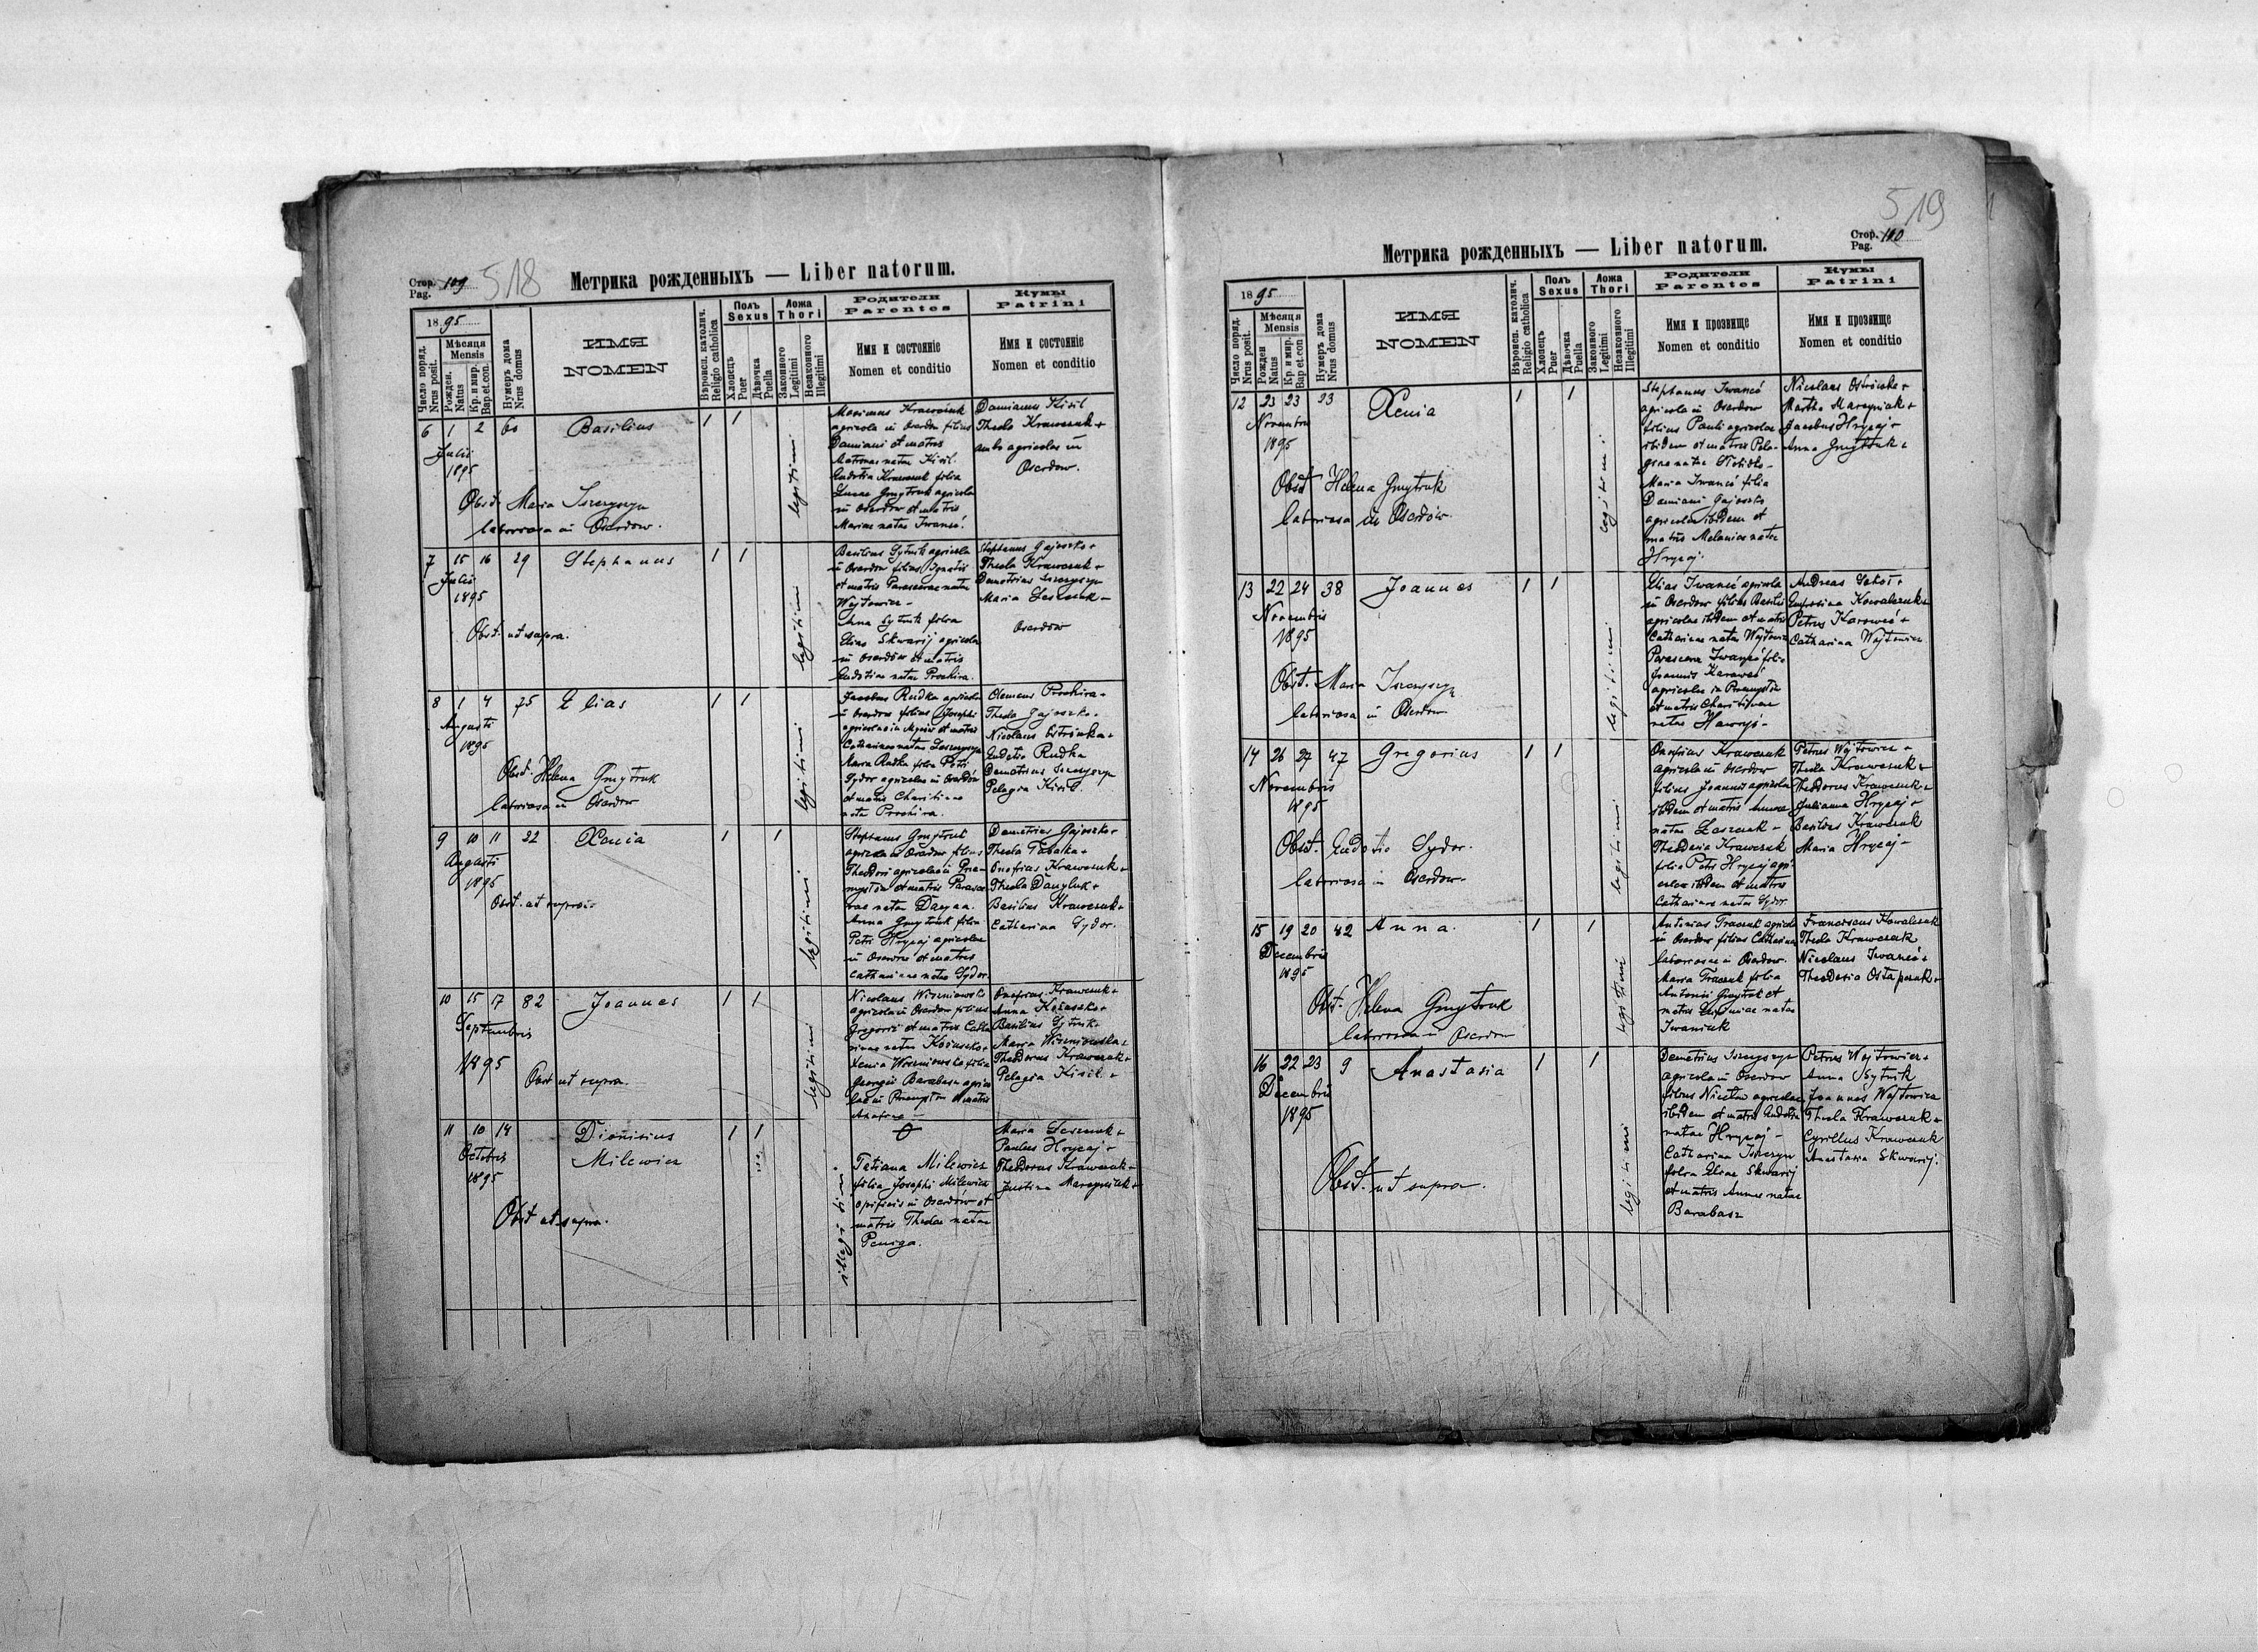 Стор. 109
Pag.
518
Метрика рожденныхъ — Liber natorum.
1895
Число поряд.
Nrus posit.
Мѣсяця
Mensis
Рожден.
Natus
Кр. и мир.
Bap.et.con.
Нумеръ дома
Nrus domus
ИМЯ
NOMEN
Вѣроисп. католич.
Religio catholica
Полъ
Sexus
Хлопецъ
Puer
Дѣвочка
Puella
Ложа
Thori
Законного
Legitimi
Незаконного
Illegitimi
Родители
Parentes
Имя и состояніе
Nomen et conditio
Кумы
Patrini
Имя и состояніе
Nomen et conditio
6 1 2 60 Basilius 1 1
Julii
1895
Obst. Maria Iszczyszyn
laboriosa in Oserdow.
legitimi
Maximus Krawczuk
agricola in Oserdow filius
Damiani et matris
Matronae natae Kisil.
Eudotia Krawczuk filia
Lucae Gmytruk agricolae
in Oserdow et matris
Mariae natae Iwaneć.
Damianus Kisil
Thecla Krawczuk +
ambo agricolae in
Oserdow.
7 15 16 29 Stephanus 1 1
Julii
1895
Obst. ut supra.
legitimi
Basilius Sytnik agricola
in Oserdow filius Ignatii
et matris Parascevae natae
Wojtowicz —
Anna Sytnik filia
Eliae Skwarij agricolae
in Oserdów et matris
Eudotiae natae Prochira.
Stephanus Gajoszko +
Thecla Krawczuk +
Demetrius Iszczyszyn
Maria Leszczuk —
Oserdow
8 1 4 75 Elias 1 1
Augusti
1895
Obst. Helena Gmytruk
laboriosa in Oserdow
legitimi
Jacobus Rudka agricola
in Oserdow filius Josephi
Maria Rudka filia Petri
Sydor agricolae in Oserdów
et matris Charitinae
nata Prochira.
Clemens Prochira +
Thecla Gajoszko.
Nicolaus Ostrówka +
Eudotia Rudka
Demetrius Iszczyszyn
Pelagia Kisil.
9 10 11 22 Xenia 1 1
Augusti
1895
Obst. ut supra.
legitimi
Stephanus Gmytruk
agricola in Oserdow filius
Theodori agricolae in Prze-
mysłów et matris Parasce-
vae natae
Anna Gmytruk filia
Petri Hrycaj agricolae
in Oserdow et matris
Catharinae natae Sydor.
Demetrius Gajoszko +
Thecla Tabaka +
Onofrius Krawczuk +
Thecla Danyluk +
Basilius Krawczuk +
Catharina Sydor.
10 15 17 82 Joannes 1 1
Septembris
1895
Obst ut supra.
legitimi
Nicolaus Wiszniowski
agricola in Oserdow filius
Gregorii et matris Catha-
rinae natae Kożuszko +
Xenia Wiszniowska filia
Georgii Barabasz agrico-
lae in Przemysłów et matris
Onofrius Krawczuk +
Anna Kożuszko +
Basilius Sytnik +
Maria Wiszniowska +
Theodorus Krawczuk +
Pelagia Kisil +
11 10 14 Dionisius 1 1
Octobris Milewicz
1895
Obst ut supra.
illegitimi.
Tatiana Milewicz
filia Josephi Milewicz
opificis in Oserdów et
matris Theclae natae
Peniga.
Maria Leszczuk +
Paulus Hrycaj +
Theodorus Krawczuk +
Justina Marcyniuk +
519
Стор. 110
Pag.
Метрика рожденныхъ — Liber natorum.
1895
Число поряд.
Nrus posit.
Мѣсяця
Mensis
Рожден
Natus
Кр. и мир.
Bap et.con
Нумеръ дома
Nrus domus
ИМЯ
NOMEN
Вѣроисп. католич.
Religio catholica
Полъ
Sexus
Хлопецъ
Puer
Дѣвочка
Puella
Ложа
Thori
Законного
Legitimi
Незаконного
Illegitimi
Родители
Parentes
Имя и прозвище
Nomen et conditio
Кумы
Patrini
Имя и прозвище
Nomen et conditio
12 23 23 23 Xenia 1 1
Novembris
1895
Obst Helena Gmytruk
laboriosa in Oserdów.
legitimi.
Stephanus Iwaneć
agricola in Oserdow
filius Pauli agricolae
ibidem et matris Pela-
Maria Iwaneć filia
Damiani Gajoszko
agricolae ibidem et
matris Melaniae natae
Hrycaj.
Nicolaus Ostrówka +
Martha Marcyniuk +
Jacobus Hrycaj +
Anna Gmytruk +
13 22 24 38 Joannes 1 1
Novembris
1895
Obst. Maria Iszczyszyn
laboriosa in Oserdow
legitimi
Elias Iwaneć agricola
in Oserdow filius Basilii
agricolae ibidem et matris
Catharinae natae Wojtowicz
Parasceva Iwaneć filia
Joannis Karaweć
agricolae in Przemysłów
et matris Charitinae
natae
Andreas Sokoł +
Eufrosina Kowalczuk +
Petrus Karaweć +
Catharina Wojtowicz
14 26 27 47 Gregorius 1 1
Novembris
1895
Obst. Eudotia Sydor.
laboriosa in Oserdow.
legitimi
Onofrius Krawczuk
agricola in Oserdow
filius Joannis agricolae
ibidem et matris Annae
natae Leszczuk —
Theodosia Krawczuk
filia Petri Hrycaj agri-
colae ibidem et matris
Catharinae natae Sydor.
Petrus Wojtowicz +
Thecla Krawczuk +
Theodorus Krawczuk +
Julianna Hrycaj +
Basilius Krawczuk
Maria Hrycaj —
15 19 20 42 Anna. 1 1
Decembris
1895
Obst. Helena Gmytruk
laboriosa in Oserdow
legitimi
Antonius Traczuk agricola
in Oserdow filius Catharinae
laboriosae in Oserdow.
Maria Traczuk filia
Antonii Gmytruk et
matris Eufemiae natae
Iwaniuk
Franciscus Kowalczuk
Thecla Krawczuk
Nicolaus Iwaneć +
Theodosia Ostapczuk +
16 22 23 9 Anastasia 1 1
Decembris
1895
Obst. ut supra.
legitimi
Demetrius Iszczyszyn
agricola in Oserdow
filius Nicetae agricolae
ibidem et matris Eudotiae
natae Hrycaj —
Catharina Iszczyszyn
filia Eliae Skwarij
et matris Annae natae
Barabasz
Petrus Wojtowicz +
Anna Sytnik
Joannes Wojtowicz
Thecla Krawczuk +
Cyrillus Krawczuk
Anastasia Skwarij.